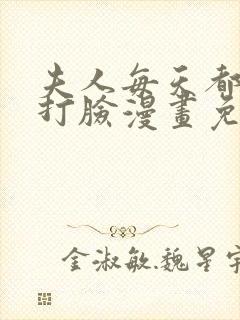 夫人每天都
打臉漫畫免
金淑敏.魏星宇